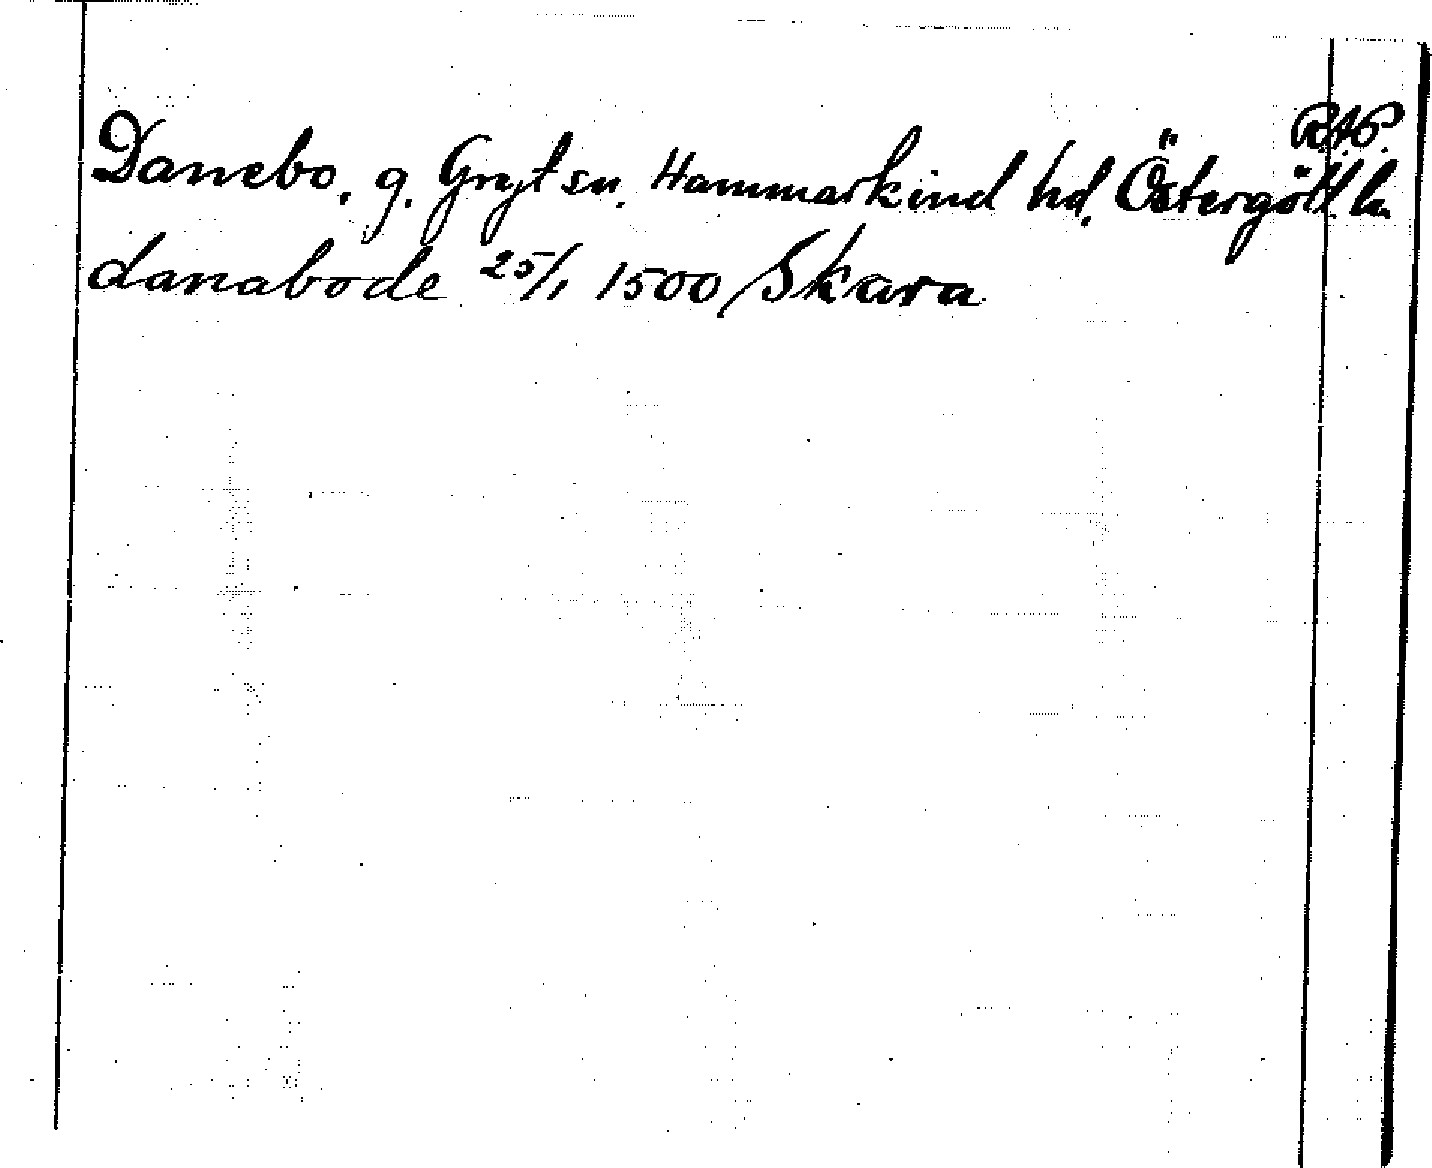 R.A.P.
Danebo, g. Gryt sn. Hammarkind hd. Östergötl ln
danabode 25/1 1500 Skara